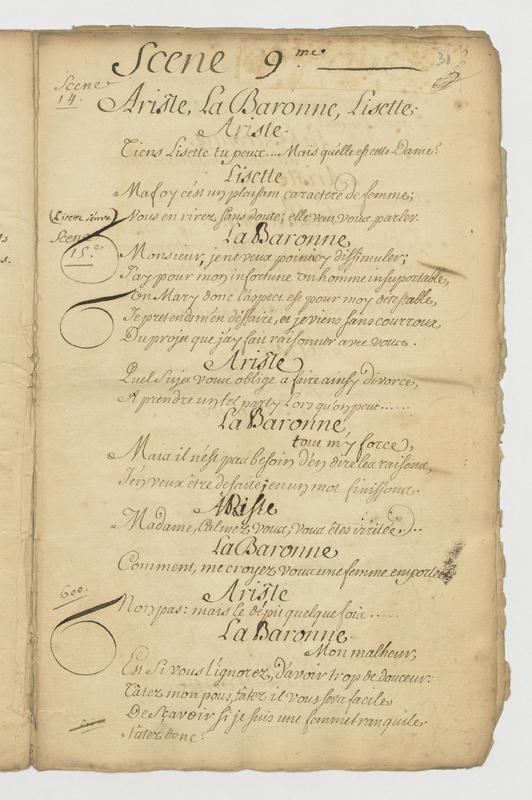 Scene 9.me
31
Scene
14.
Ariste, La Baronne, Lisette.
Ariste.
Tiens Lisette tu peux.... Mais quelle est cette Dame?
Lisette
Ma foy c'est un plaisant caractere de femme;
Vous en rirez sans doute; elle veut vous parler.
(Lisette sort)
Scene
15.e
La Baronne
Monsieur, je ne veux point icy dissimuler;
J'ay pour mon infortune un homme insuportable,
Un Mary donc l'aspect est pour moy detestable,
Je pretends m'en deffaire, et je viens sans courroux
Du projet que j'ay fait raisonner avec vous.
Ariste
Quel sujet vous oblige a faire ainsy divorce,
A prendre un tel party Lors qu'on peut......
La Baronne
tout m'y force,
Mais il n'est pas besoin d'en dire les raisons,
J'en veux être defaite; en un mot finissons.
Ariste
Madame, Calmez vous, vous êtes irritée...
La Baronne
Comment, me croyez vous une femme emportée
Ariste
600.
Non pas: mais le depit quelque fois.....
La Baronne
Mon malheur,
Est si vous l'ignorez, d'avoir trop de douceur:
Tâtez mon pous, tâtez il vous sera facile
De sçavoir si je suis une femme tranquile.
Tatez donc.